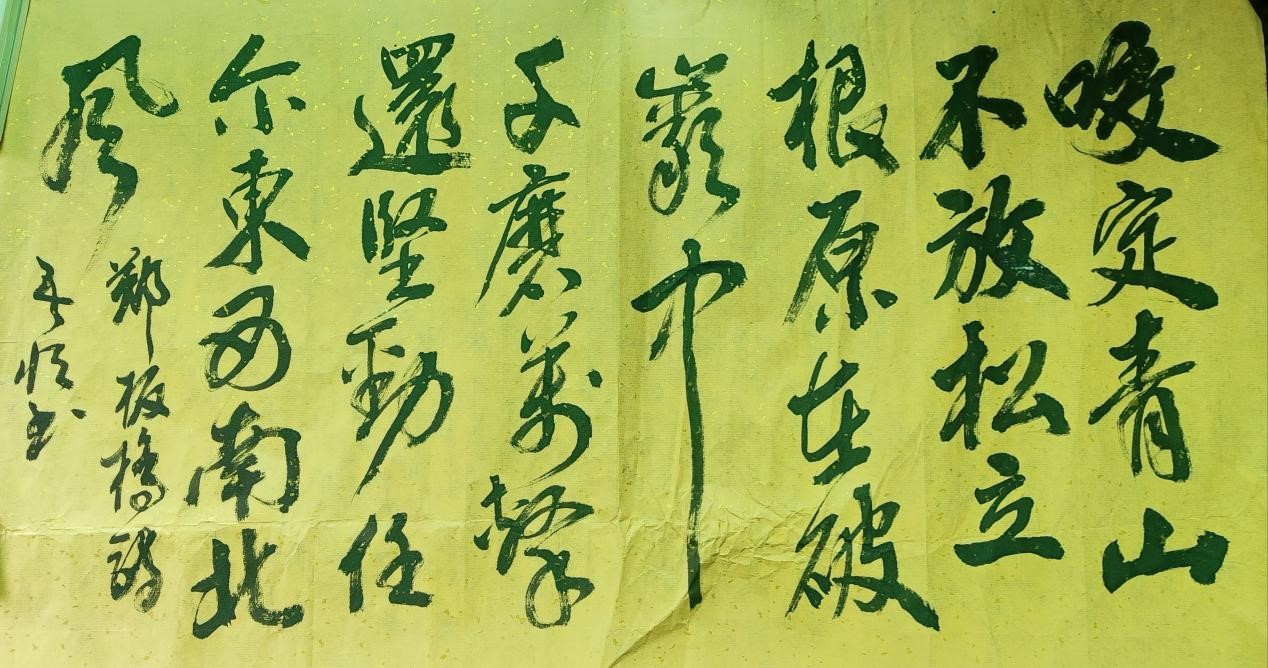 咬定青山
不放松立
根原在破
巖中
千磨萬擊
還堅勁任
尔東西南北
風
鄭板橋詩
书